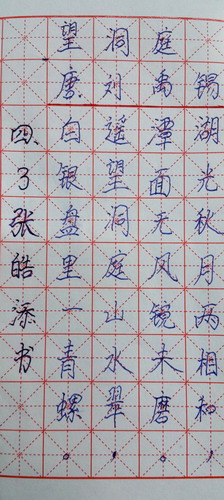 望洞庭
唐 刘禹锡
湖光秋月两相和，
潭面无风镜未磨。
遥望洞庭山水翠，
白银盘里一青螺。
四、3张皓添书